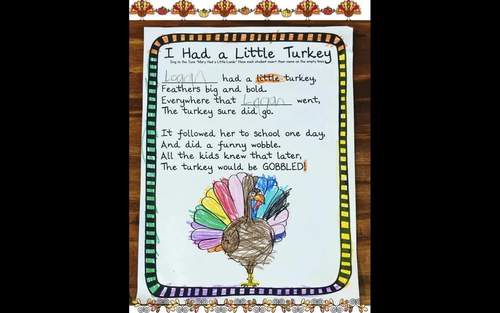 I Had a Little Turkey
Sing to the Tune "Mary Had a Little Lamb" Have each student insert their name on the empty lines.
Logan had a little turkey,
Feathers big and bold.
Everywhere that Logan went,
The turkey sure did go.
It followed her to school one day,
And did a funny wobble.
All the kids knew that later,
The turkey would be GOBBLED!